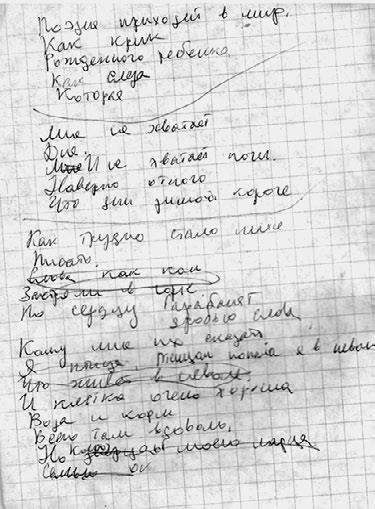 Поэзия приходит в мир.
Как крик
Рожденного ребенка
Как слеза
Которая
Мне не хватает
Дня.
И не хватает ночи.
Наверно от того
Что дни зимой короче
Как трудно стало мне
Писать.
Слова как ком
Застряли в горле
По сердцу барабанят
дробью слова
Кому мне их сказать
Я птица, птицам попала я в неволю
Что живет в неволе.
И клетка очень хороша
Вода и корм
Всего там вдоволь.
Но моего